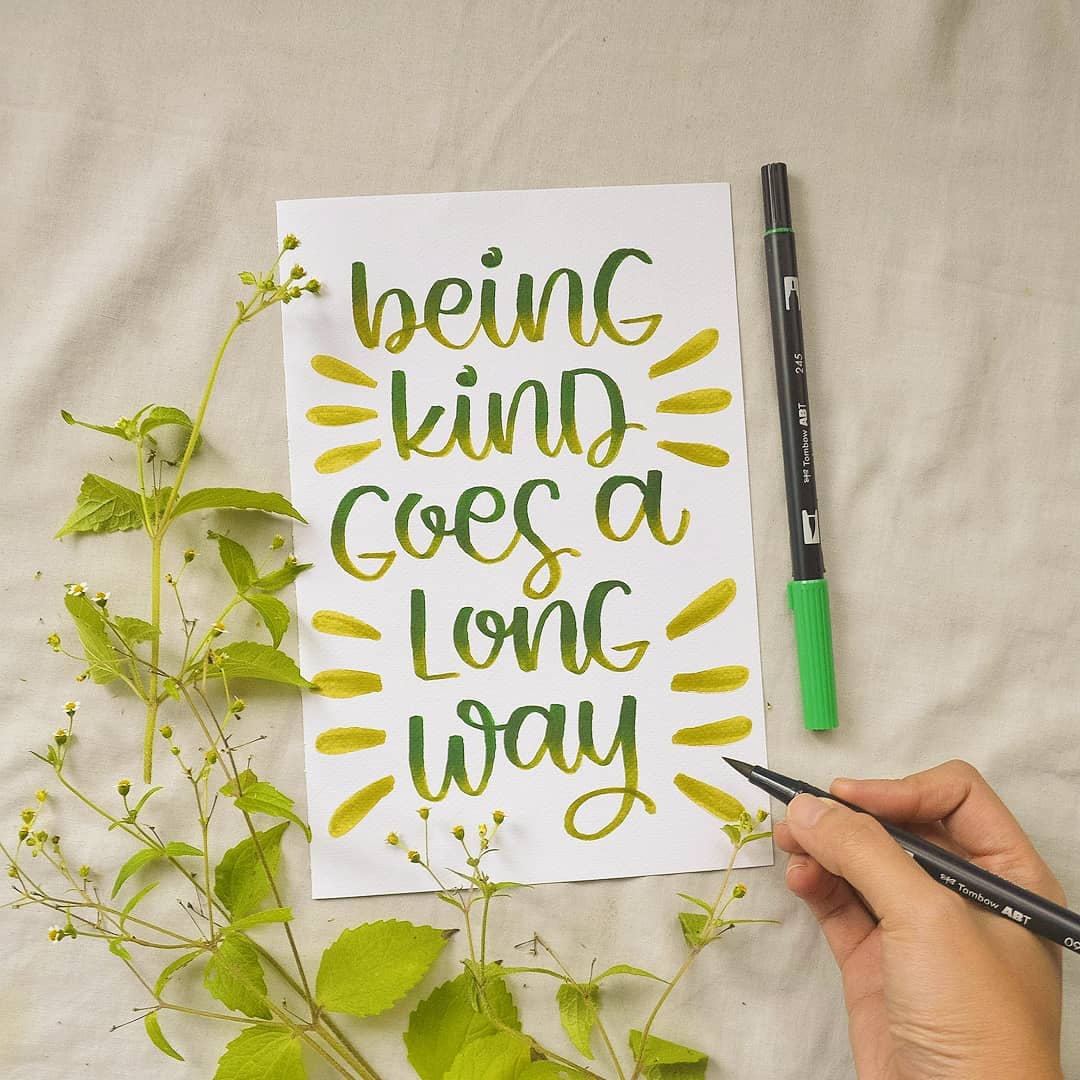 being
kind
goes a
long
way
245
Tombow ABT
Tombow ABT